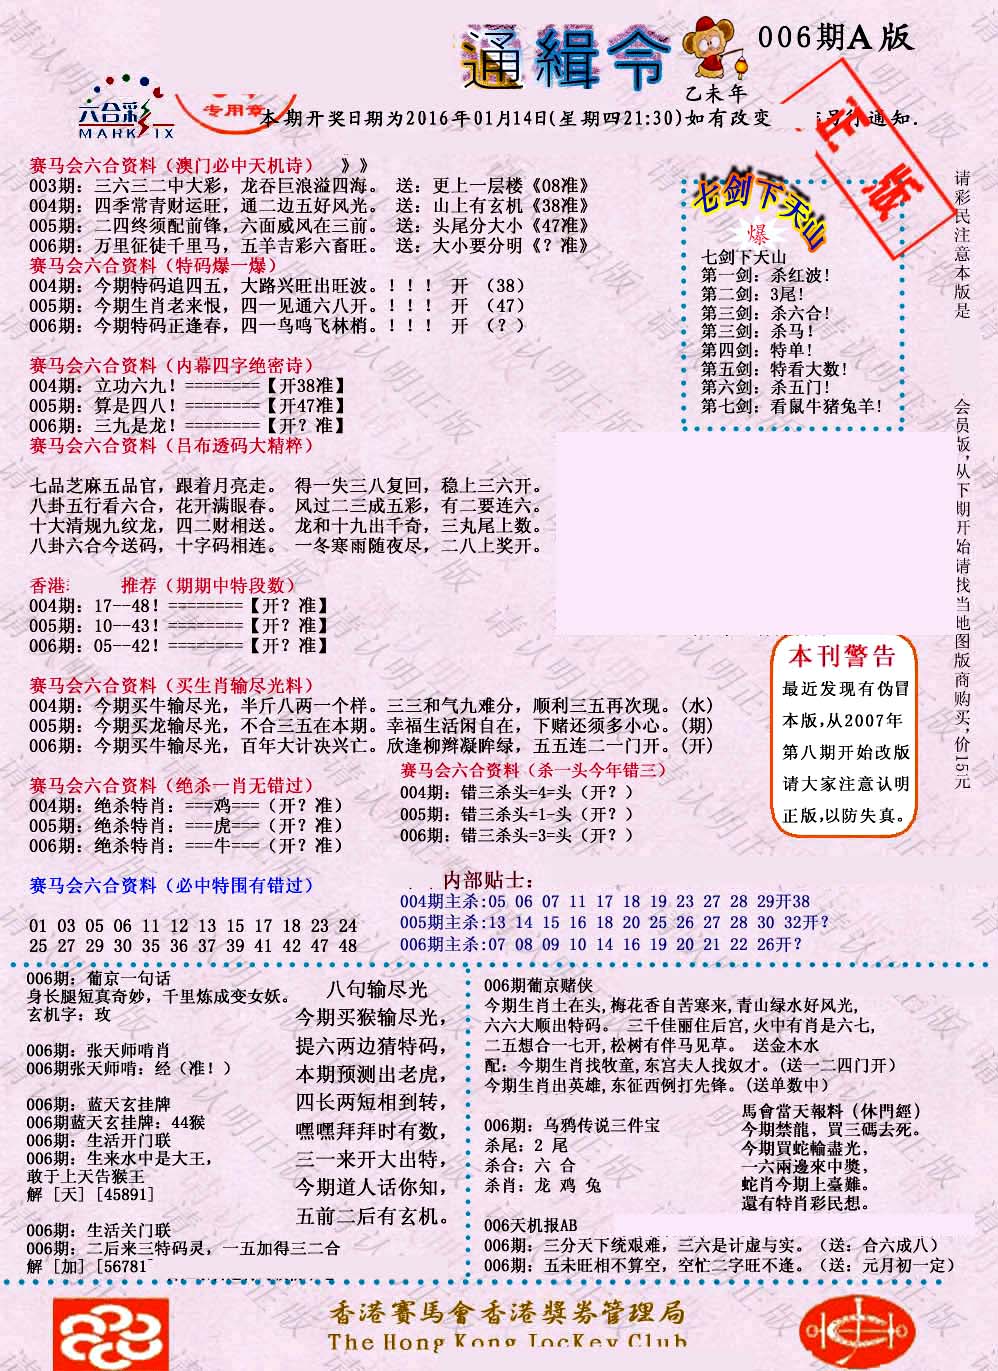 通緝令
006期A版
乙未年
六合彩
MARK SIX
专用章
本期开奖日期为2016年01月14日(星期四21:30)如有改变 另行通知.
赛马会六合资料（澳门必中天机诗） 》》
003期: 三六三二中大彩, 龙吞巨浪溢四海。 送: 更上一层楼《08准》
004期: 四季常青财运旺, 通二边五好风光。 送: 山上有玄机《38准》
005期: 二四终须配前锋, 六面威风在三前。 送: 头尾分大小《47准》
006期: 万里征徒千里马, 五羊吉彩六畜旺。 送: 大小要分明《？准》
赛马会六合资料（特码爆一爆）
004期: 今期特码追四五, 大路兴旺出旺波。！！！ 开 （38）
005期: 今期生肖老来恨, 四一见通六八开。！！！ 开 （47）
006期: 今期特码正逢春, 四一鸟鸣飞林梢。！！！ 开 （？）
七剑下天山
爆
七剑下天山
第一剑: 杀红波!
第二剑: 3尾!
第三剑: 杀六合!
第三剑: 杀马!
第四剑: 特单!
第五剑: 特看大数!
第六剑: 杀五门!
第七剑: 看鼠牛猪兔羊!
请彩民注意本版是
会员版,从下期开始请找当地图版商购买,价15元
赛马会六合资料（内幕四字绝密诗）
004期: 立功六九! ========【开38准】
005期: 算是四八! ========【开47准】
006期: 三九是龙! ========【开? 准】
赛马会六合资料（吕布透码大精粹）
七品芝麻五品官, 跟着月亮走。 得一失三八复回, 稳上三六开。
八卦五行看六合, 花开满眼春。 风过二三成五彩, 有二要连六。
十大清规九纹龙, 四二财相送。 龙和十九出千奇, 三丸尾上数。
八卦六合今送码, 十字码相连。 一冬寒雨随夜尽, 二八上奖开。
香港: 推荐（期期中特段数）
004期: 17--48! ========【开? 准】
005期: 10--43! ========【开? 准】
006期: 05--42! ========【开? 准】
本刊警告
最近发现有伪冒
本版,从2007年
第八期开始改版
请大家注意认明
正版,以防失真。
赛马会六合资料（买生肖输尽光料）
004期: 今期买牛输尽光, 半斤八两一个样。三三和气九难分, 顺利三五再次现。(水)
005期: 今期买龙输尽光, 不合三五在本期。幸福生活闲自在, 下赌还须多小心。(期)
006期: 今期买牛输尽光, 百年大计决兴亡。欣逢柳辫凝眸绿, 五五连二一门开。(开)
赛马会六合资料（绝杀一肖无错过）
004期: 绝杀特肖: ===鸡===（开? 准）
005期: 绝杀特肖: ===虎===（开? 准）
006期: 绝杀特肖: ===牛===（开? 准）
赛马会六合资料（杀一头今年错三）
004期: 错三杀头=4=头（开? ）
005期: 错三杀头=1-头（开? ）
006期: 错三杀头=3=头（开? ）
赛马会六合资料（必中特围有错过）
01 03 05 06 11 12 13 15 17 18 23 24
25 27 29 30 35 36 37 39 41 42 47 48
内部贴士:
004期主杀:05 06 07 11 17 18 19 23 27 28 29开38
005期主杀:13 14 15 16 18 20 25 26 27 28 30 32开?
006期主杀:07 08 09 10 14 16 19 20 21 22 26开?
006期: 葡京一句话
身长腿短真奇妙, 千里炼成变女妖。
玄机字: 玫
006期: 张天师啃肖
006期张天师啃: 经（准! ）
006期: 蓝天玄挂牌
006期蓝天玄挂牌: 44猴
006期: 生活开门联
006期: 生来水中是大王,
敢于上天告猴王
解 [天] [45891]
006期: 生活关门联
006期: 二后来三特码灵, 一五加得三二合
解 [加] [56781
八句输尽光
今期买猴输尽光,
提六两边猜特码,
本期预测出老虎,
四长两短相到转,
嘿嘿拜拜时有数,
三一来开大出特,
今期道人话你知,
五前二后有玄机。
006期葡京赌侠
今期生肖土在头, 梅花香自苦寒来, 青山绿水好风光,
六六大顺出特码。 三千佳丽住后宫, 火中有肖是六七,
二五想合一七开, 松树有伴马见草。 送金木水
配: 今期生肖找牧童, 东宫夫人找奴才。(送一二四门开)
今期生肖出英雄, 东征西例打先锋。(送单数中)
006期: 乌鸦传说三件宝
杀尾: 2 尾
杀合: 六 合
杀肖: 龙 鸡 兔
馬會當天報料（休門經）
今期禁龍, 買三碼去死。
今期買蛇輸盡光,
一六兩邊來中獎,
蛇肖今期上臺難。
還有特肖彩民想。
006天机报AB
006期: 三分天下统艰难, 三六是计虚与实。（送: 合六成八）
006期: 五未旺相不算空, 空忙二字旺不逢。（送: 元月初一定）
香港賽馬會香港獎券管理局
The Hong Kong Jockey Club